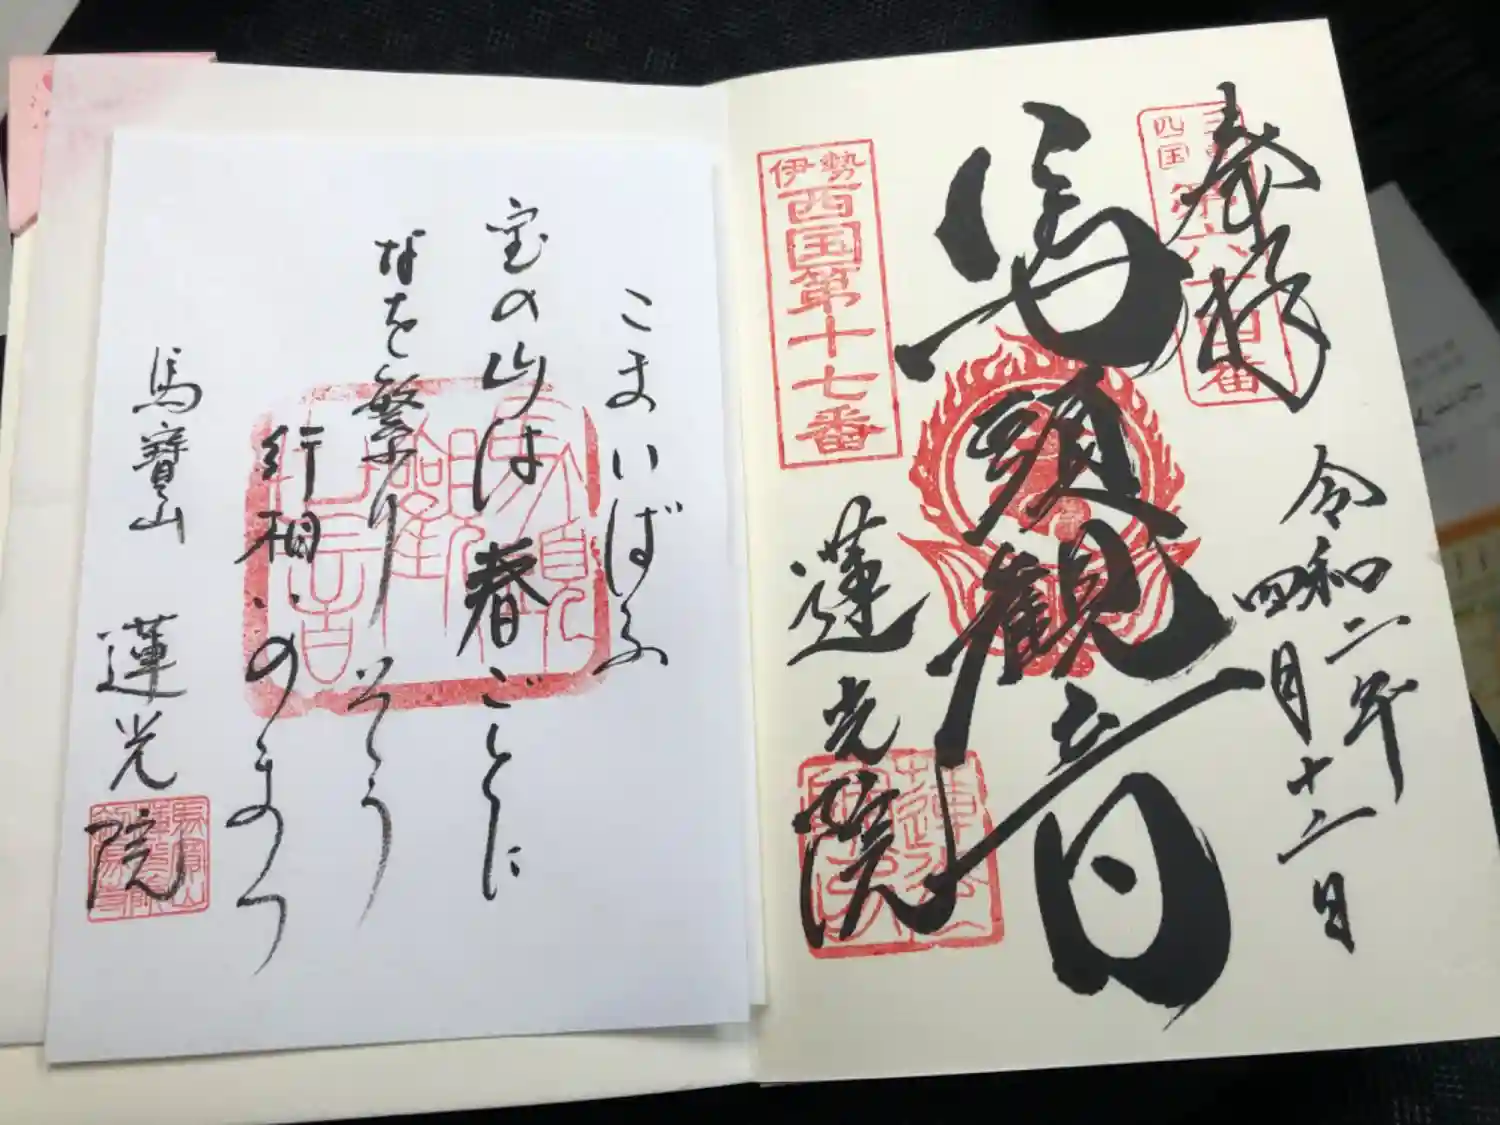 奉拝
令和二年
四月十二日
馬頭観音
蓮光院
伊勢
西国第十七番
四国
こまいばふ
宝の山は春ごとに
なを繁りそう
行相いのまつ
馬寶山 蓮光院